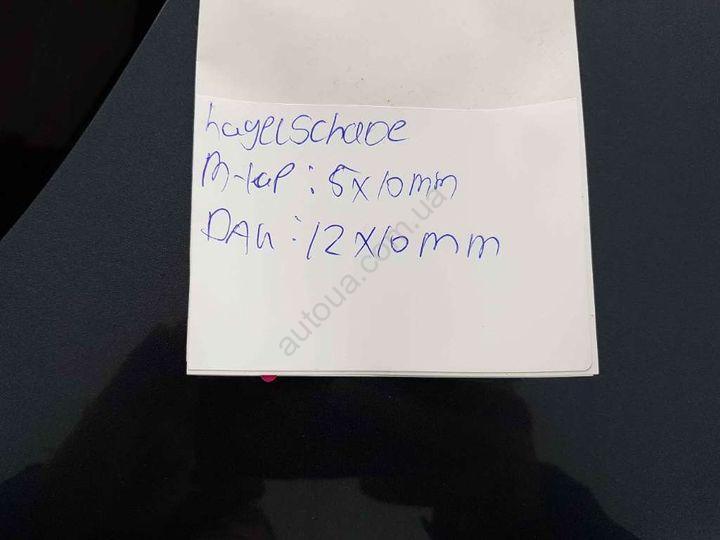 hagelschade
M-kap: 5x10mm
DAK: 12x10mm
autoua.com.ua